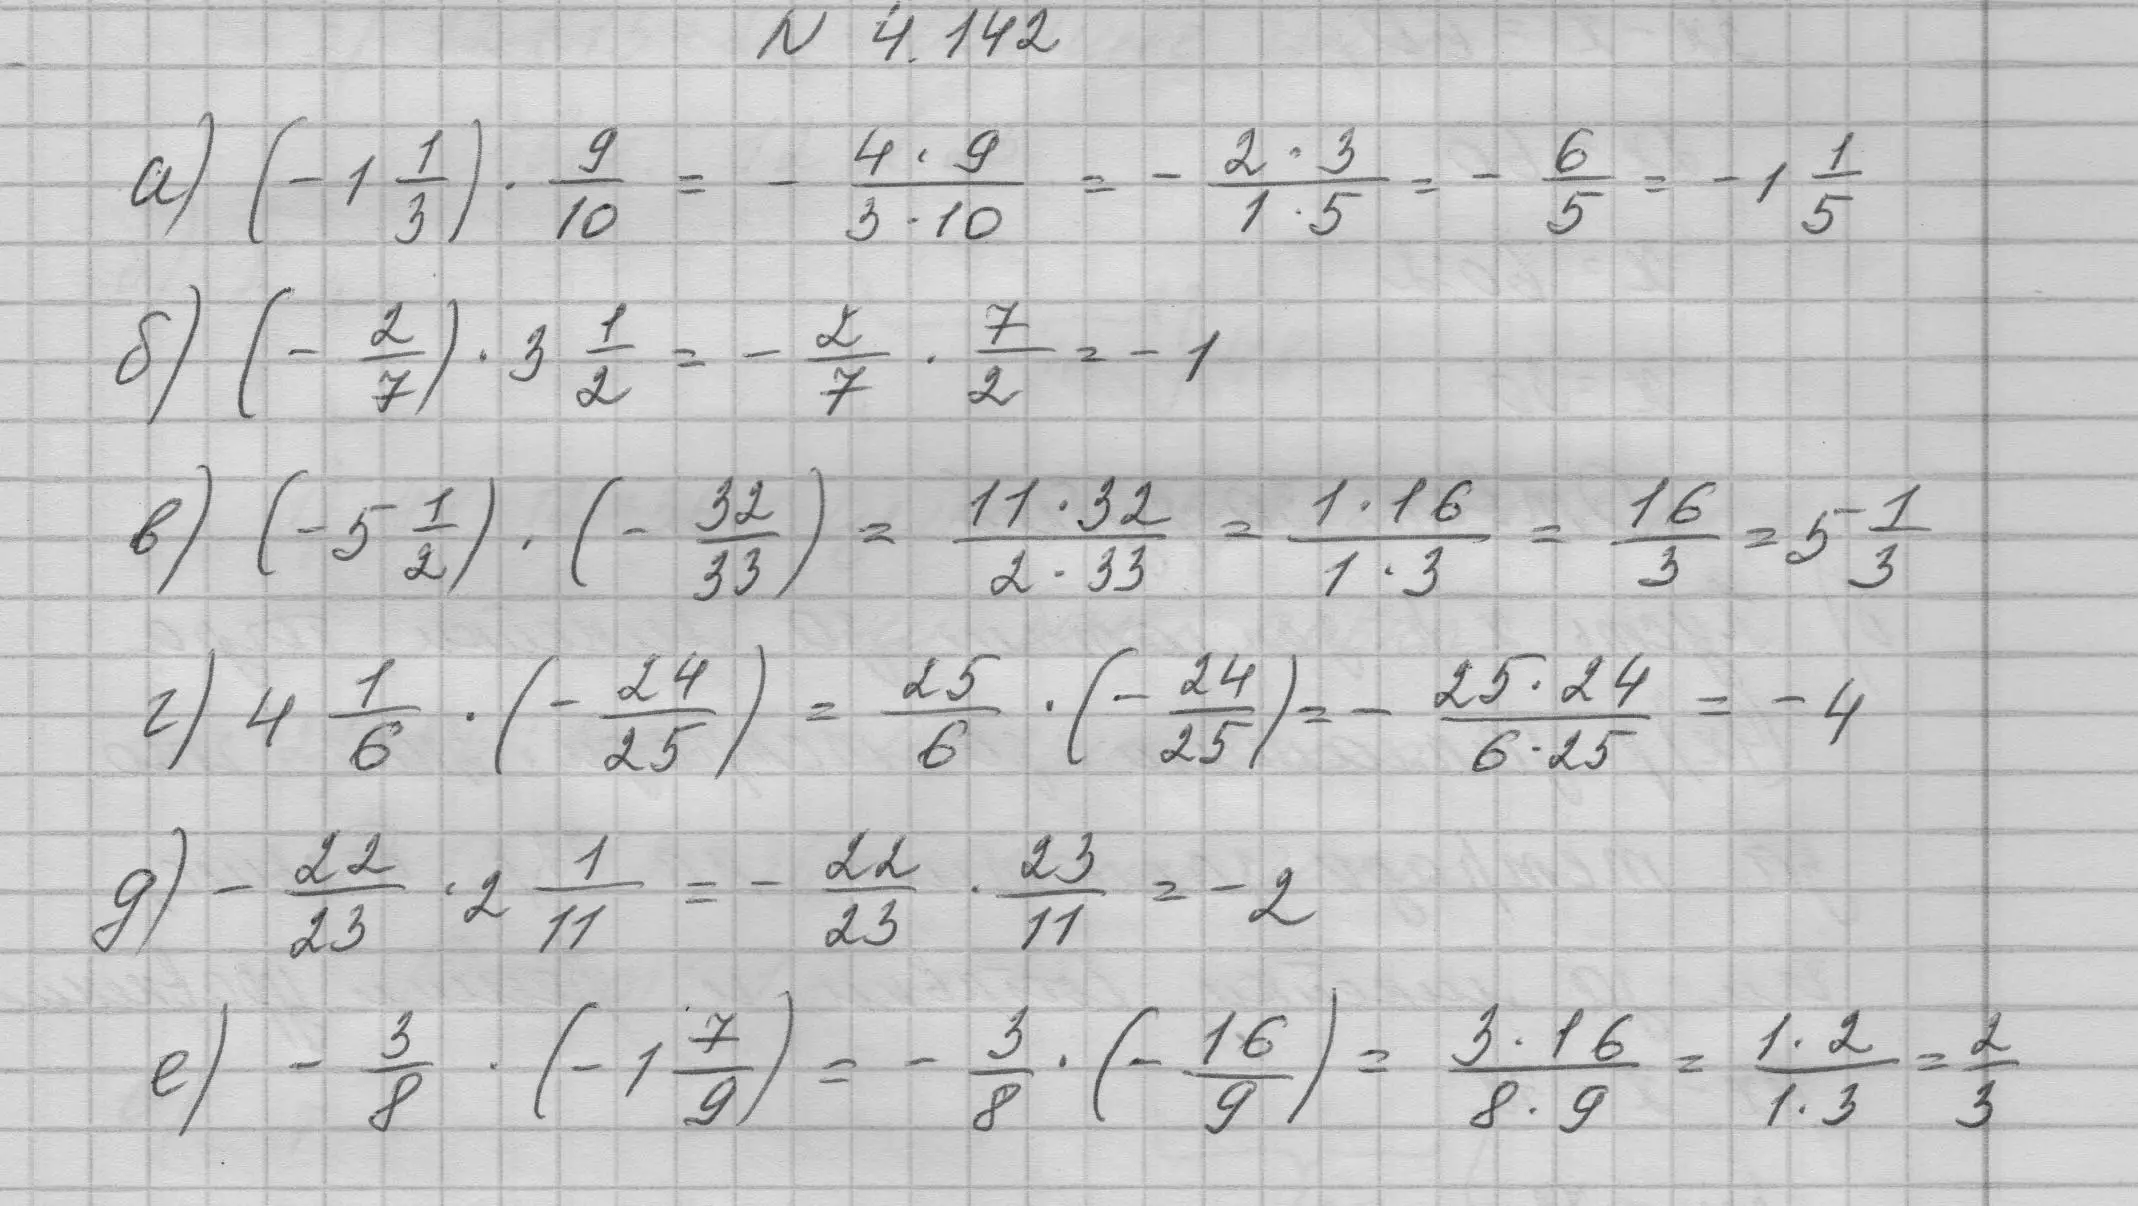 N 4.142
а) (-1 1/3) · 9/10 = - (4 · 9)/(3 · 10) = - (2 · 3)/(1 · 5) = - 6/5 = -1 1/5
б) (- 2/7) · 3 1/2 = - 2/7 · 7/2 = - 1
в) (-5 1/2) · (- 32/33) = (11 · 32)/(2 · 33) = (1 · 16)/(1 · 3) = 16/3 = 5 1/3
г) 4 1/6 · (- 24/25) = 25/6 · (- 24/25) = - (25 · 24)/(6 · 25) = - 4
д) - 22/23 · 2 1/11 = - 22/23 · 23/11 = - 2
е) - 3/8 · (-1 7/9) = - 3/8 · (- 16/9) = (3 · 16)/(8 · 9) = (1 · 2)/(1 · 3) = 2/3